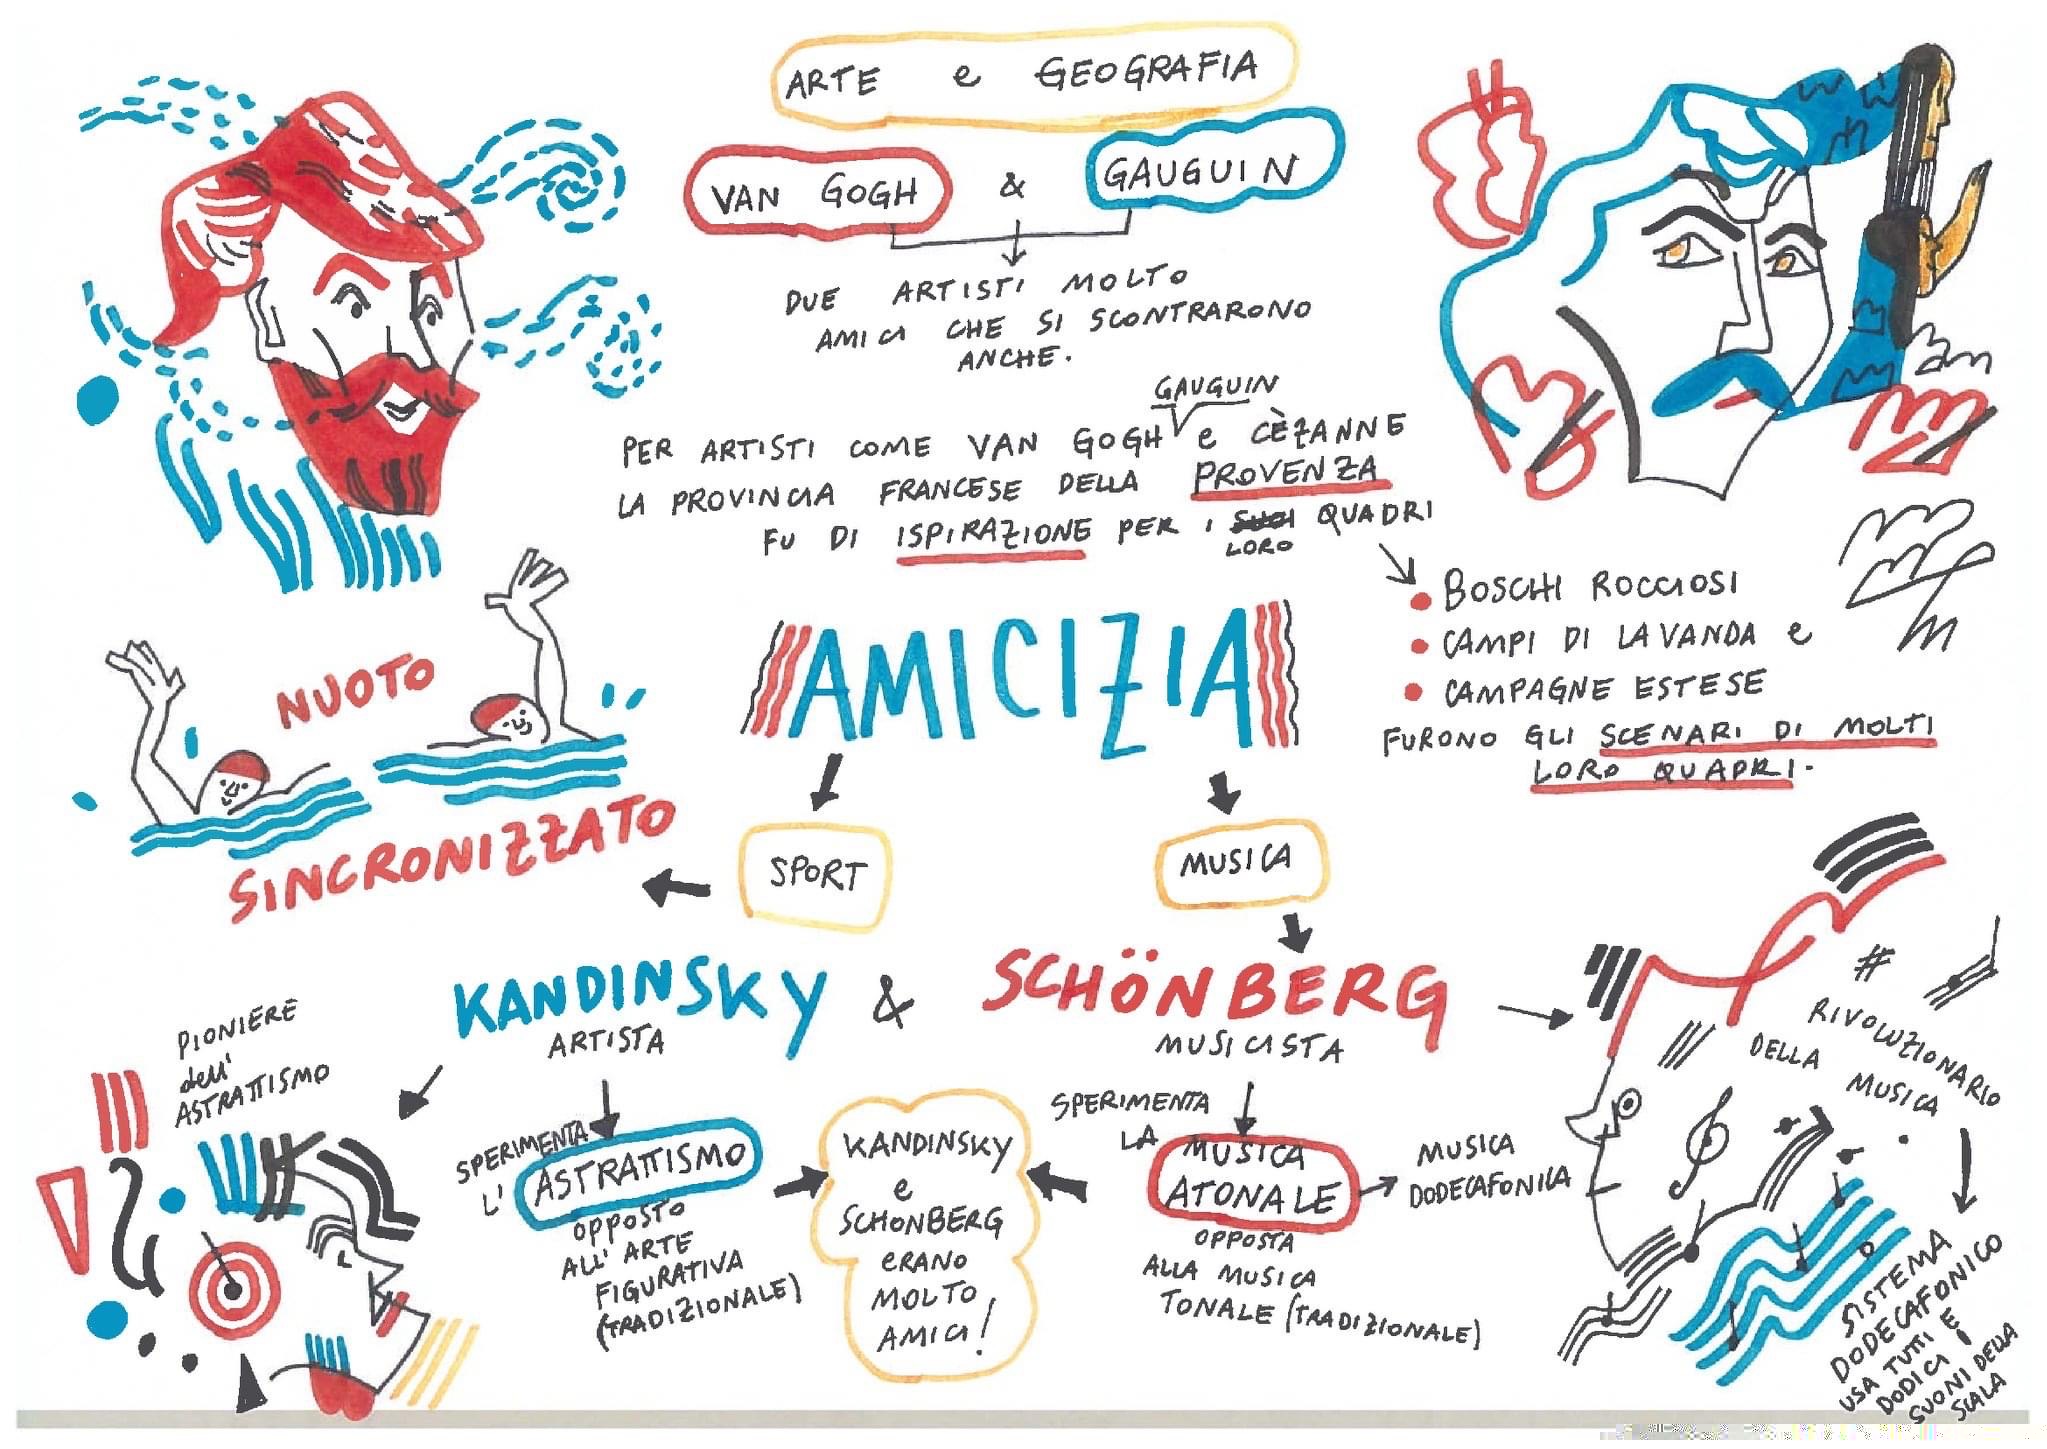 ARTE e GEOGRAFIA
VAN GOGH & GAUGUIN
DUE ARTISTI MOLTO
AMICI CHE SI SCONTRARONO
ANCHE.
GAUGUIN
PER ARTISTI COME VAN GOGH e CÈZANNE
LA PROVINCIA FRANCESE DELLA PROVENZA
FU DI ISPIRAZIONE PER I SUOI QUADRI
LORO
BOSCHI ROCCIOSI
CAMPI DI LAVANDA e
CAMPAGNE ESTESE
FURONO GLI SCENARI DI MOLTI
LORO QUADRI.
AMICIZIA
SPORT
NUOTO
SINCRONIZZATO
MUSICA
KANDINSKY & SCHÖNBERG
ARTISTA
MUSICISTA
PIONIERE
dell'
ASTRATTISMO
SPERIMENTA
L'
ASTRATTISMO
OPPOSTO
ALL'ARTE
FIGURATIVA
(TRADIZIONALE)
KANDINSKY
e
SCHONBERG
ERANO
MOLTO
AMICI!
SPERIMENTA
LA
MUSICA
ATONALE
OPPOSTA
ALLA MUSICA
TONALE (TRADIZIONALE)
MUSICA
DODECAFONICA
# RIVOLUZIONARIO
DELLA
MUSICA
SISTEMA
DODECAFONICO
USA TUTTI E
DODICI I
SUONI DELLA
SCALA